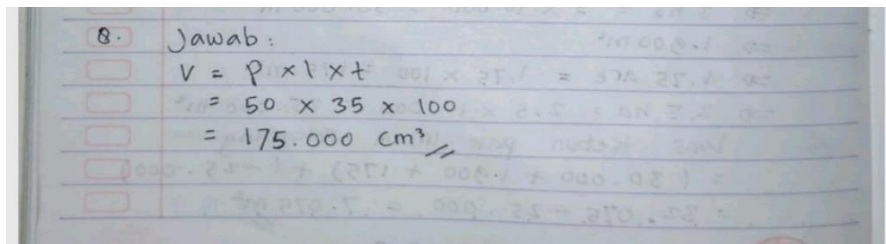 8. Jawab:
V = P x l x t
= 50 x 35 x 100
= 175.000 cm³